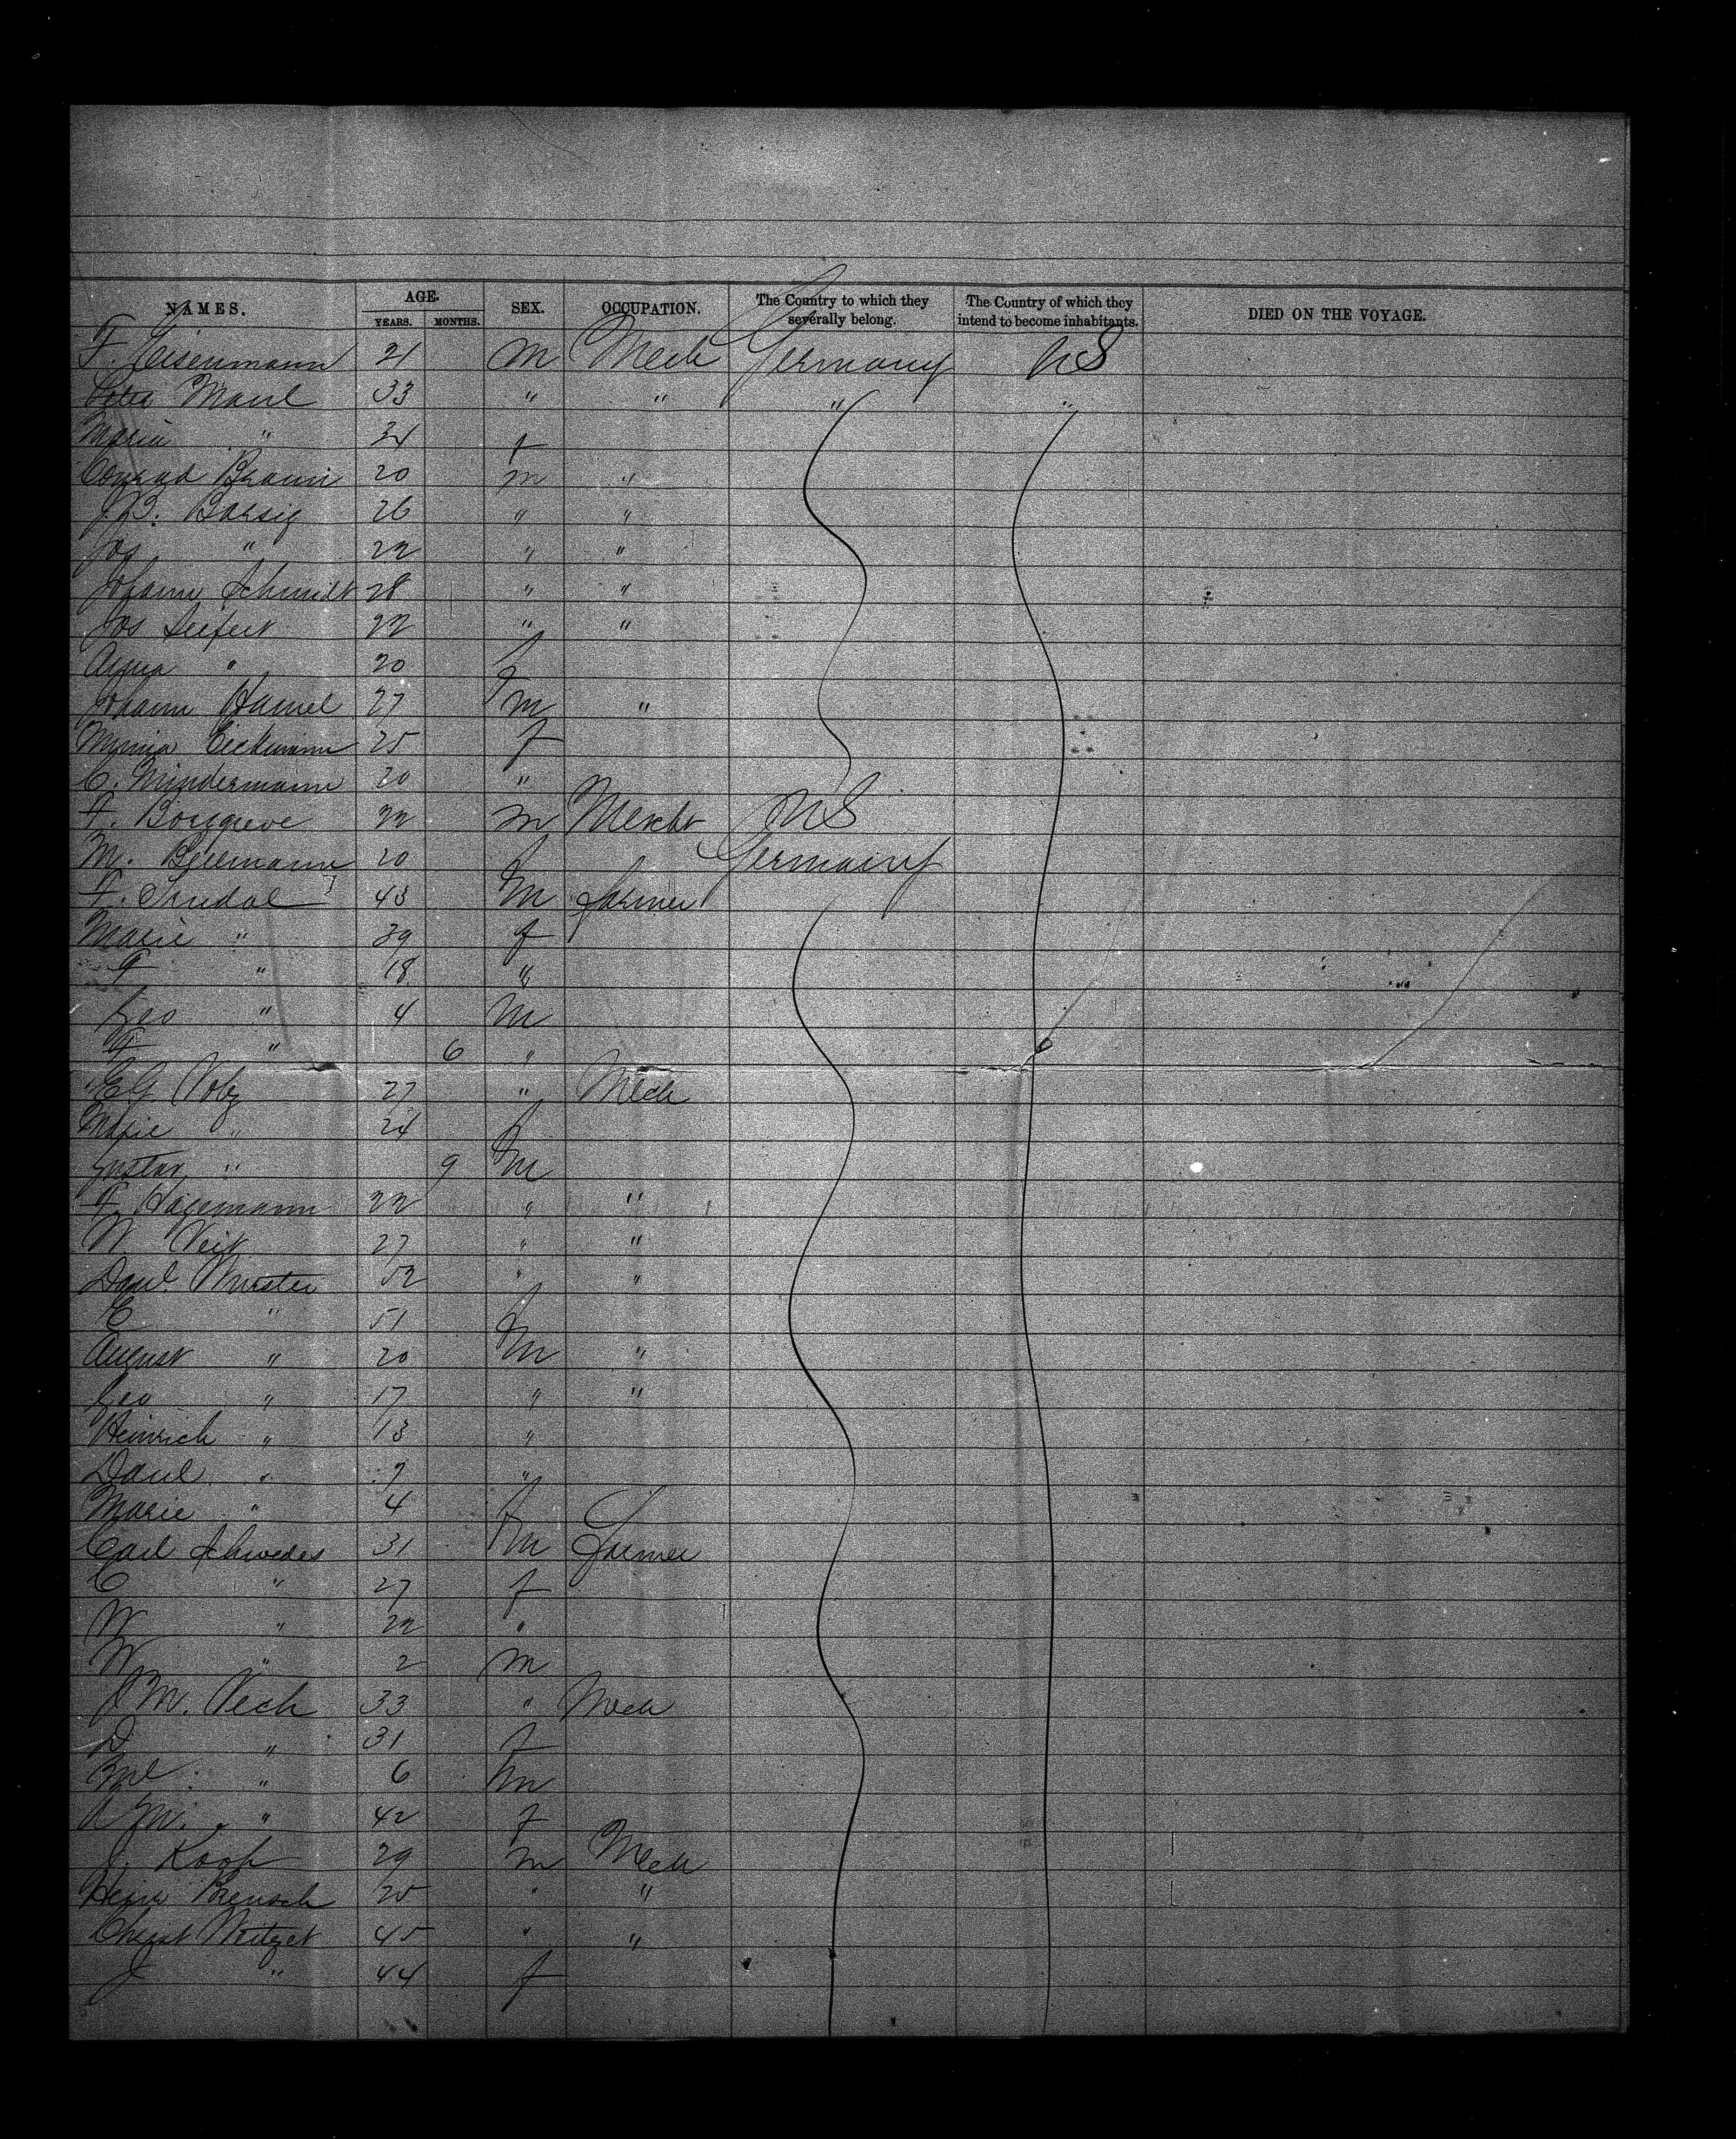 NAMES. AGE. SEX. OCCUPATION. The Country to which they severally belong. The Country of which they intend to become inhabitants. DIED ON THE VOYAGE.
YEARS. MONTHS.
F. Eisenmann 21 m Mech Germany US
Peter Maul 33 " " " "
Maria " 34 f
Conrad Braun 20 m "
J.B. Barsig 26 " "
Jos " 22 " "
Johann Schmidt 28 " "
Jos Seifert 22 " "
Anna " 20 f
Johann Hamel 27 m "
Minna Eickmann 25 f
C. Mindermann 20 "
F. Borgreve 22 m Mercht US
M. Beermann 20 f Germany
F. 43 m Farmer
Marie " 39 f
F " 18 "
Geo " 4 m
F " 6 "
E.G. Volz 27 " Mech
Marie " 24 f
Gustav " 9 m
F. Hagemann 22 " "
W Veit 27 " "
Danl. Wurster 52 " "
E " 51 f
August " 20 m "
Geo " 17 " "
Heinrich " 13 "
Danl " 9 "
Marie " 4 f
Carl Schwedes 31 m Farmer
C " 27 f
W " 22 "
W " 2 m
J M. Vech 33 " Mech
D " 31 f
" 6 m
A M. " 42 f
J. Koop 29 m Mech
Heinr Brensch 25 " "
Christ Witzet 45 " "
J " 44 f